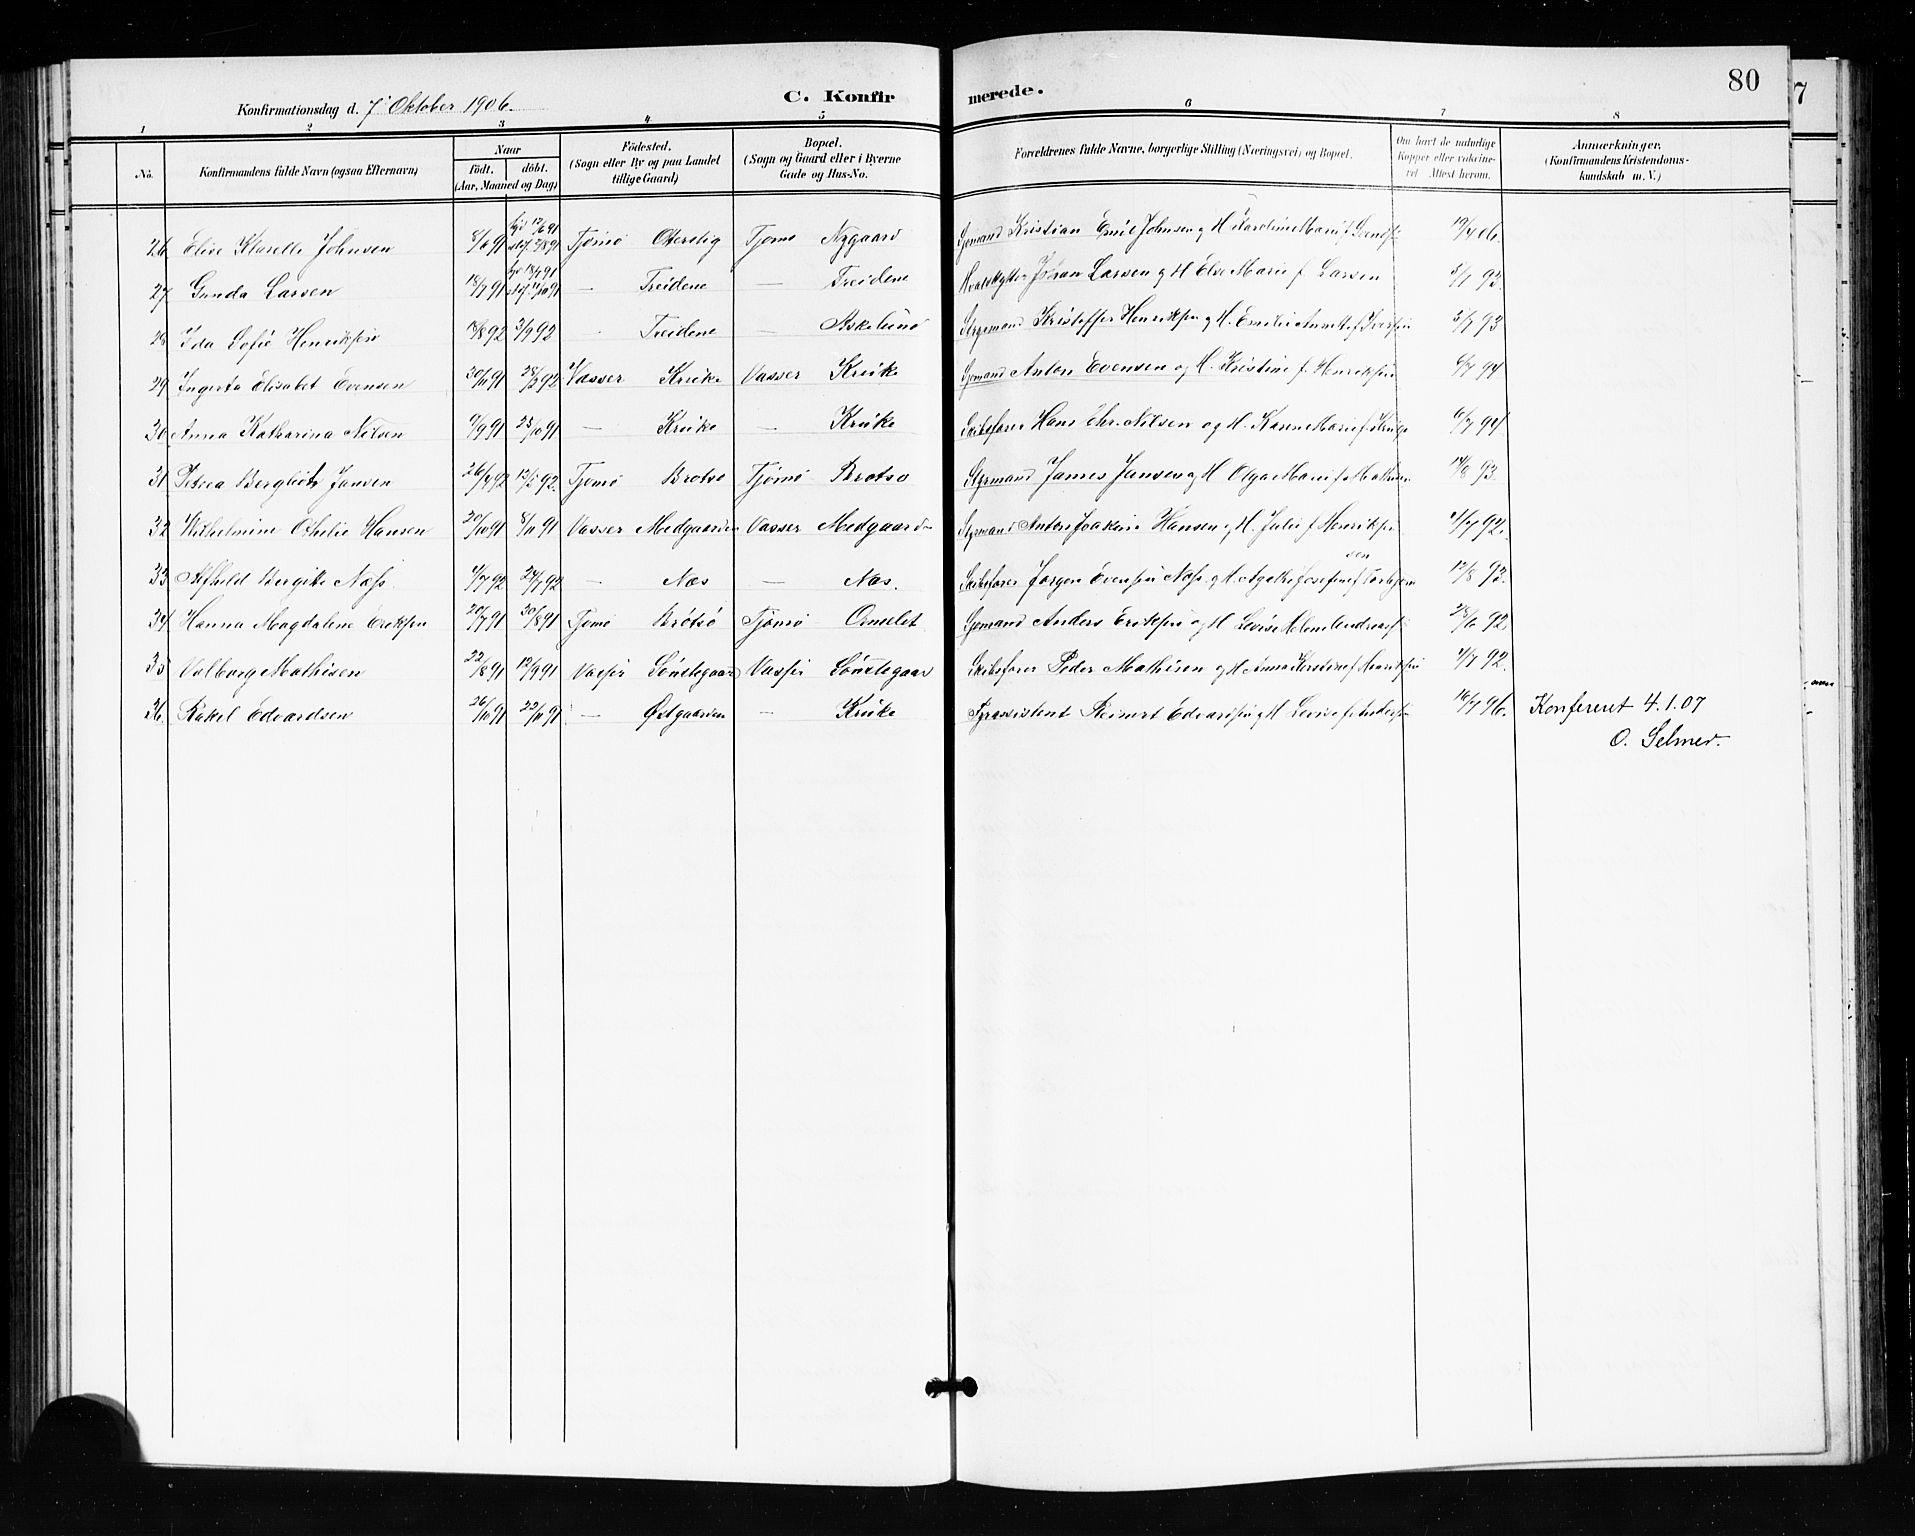 80
Konfirmationsdag d. 7 Oktober 1906.
C. Konfirmerede.
1 2 3 4 5 6 7 8
No. Konfirmandens fulde Navn (ogsaa Efternavn) Naar Födt. döbt. (Aar, Maaned og Dag) Födested. (Sogn eller By og paa Landet tillige Gaard) Bopæl. (Sogn og Gaard eller i Byerne Gade og Hus-No. Forældrenes fulde Navne, borgerlige Stilling (Næringsvei) og Bopæl. Om havt de naturlige Kopper eller vaccineret Attest herom. Anmærkninger, (Konfirmandens Kristendomskundskab m. V.)
26 Elise Klarelle Johnsen 8/6 91 Tjømø Oterstig Tjømø Nygaard Sjømand Kristian Emil Johnsen og H. 19/4 06.
27 Gunda Larsen 18/7 91 — Treidene — Treidene Hvalskytter Johan Larsen og H. Else Marie f. Larsen 5/7 93.
28 Ida Sofie Henriksen 18/8 92 3/9 92 — Treidene — Askelund Styrmand Kristoffer Henriksen og H. Emilie 5/7 93
29 Ingerta Elisabet Evensen 30/11 91 28/2 92 Vasser Kruke Vasser Kruke Sjømand Anton Evensen og H. Kristine f. Henriksen 6/7 94
30 Anna Katharina Nilsen 9/9 91 25/10 91 — Kruke — Kruke Skibsfører Hans Chr. Nilsen og H. Karen Marie f. 6/7 94
31 Petrea Bergliot Jansen 26/4 92 12/5 92. Tjømø Brotsø Tjømø Brotsø Styrmand James Jansen og H. Olga Marie f. Mathisen 14/8 93
32 Wilhelmine Othilie Hansen 20/10 91 8/11 91 Vasser Medgaarden Vasser Medgaarden Styrmand Anton Joakim Hansen og H. Julie f. Henriksen 92.
33 Alfhild Bergitte Næss. 4/7 92 24/7 92 — Næs — Næs. Skibsfører Jørgen Evensen Næss og H. Agathe Josefine f. Torkjemsen 12/8 93.
34 Hanna Magdalene Eriksen 20/7 91 30/8 91 Tjømø Brøtsø Tjømø Ormelet Sjømand Anders Eriksen og H. Lovise 28/6 92
35 Valborg Mathisen 22/8 91 12/9 91 Vasser Sønstegaard Vasser Sønstegaar Skibsfører Peder Mathisen og H. Anna f. Henriksen 4/7 92.
36. Rakel Edvardsen 26/10 91 22/11 91 — Østgaarden — Kruke Fyrassistent Reinert Edvardsen og H. Lovise f. Anders 16/7 96. Konfereret 4.1.07
O. Selmer.